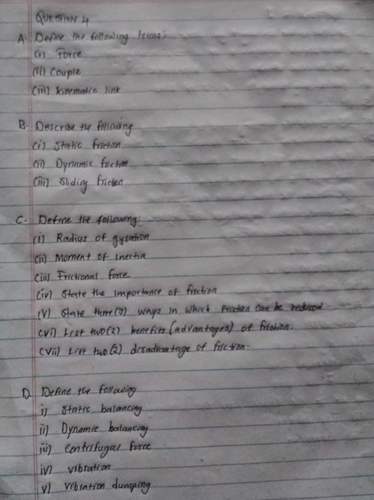 QUESTION 4
A. Define the following terms:
(i) Force
(ii) Couple
(iii) kinematic link
B. Describe the following
(i) Static friction
(ii) Dynamic friction
(iii) Sliding friction
C. Define the following:
(i) Radius of gyration
(ii) Moment of inertia
(iii) Frictional force
(iv) State the importance of friction
(v) State three(3) ways in which friction can be reduced
(vi) List two(2) benefits (advantages) of friction.
(vii) List two(2) disadvantage of friction.
D. Define the following
i) Static balancing
ii) Dynamic balancing
iii) Centrifugal force
iv) vibration
v) vibration dumping